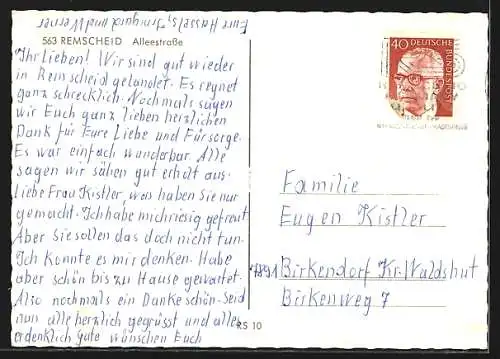 Eure Hassels, Irmgard und Werner
563 REMSCHEID Alleestraße
Ihr Lieben! Wir sind gut wieder
in Remscheid gelandet. Es regnet
ganz schrecklich. Nochmals sagen
wir Euch ganz lieben herzlichen
Dank für Eure Liebe und Fürsorge.
Es war einfach wunderbar. Alle
sagen wir sähen gut erholt aus.
Liebe Frau Kistler, was haben Sie nur
gemacht. Ich habe mich riesig gefreut
Aber Sie sollen das doch nicht tun.
Ich konnte es mir denken. Habe
aber schön bis zu Hause gewartet.
Also nochmals ein Dankeschön. Seid
nun alle herzlich gegrüsst und alles
erdenklich Gute wünschen Euch
RS 10
40 DEUTSCHE
BUNDESPOST
Familie
Eugen Kistler
7891 Birkendorf Kr. Waldshut
Birkenweg 7